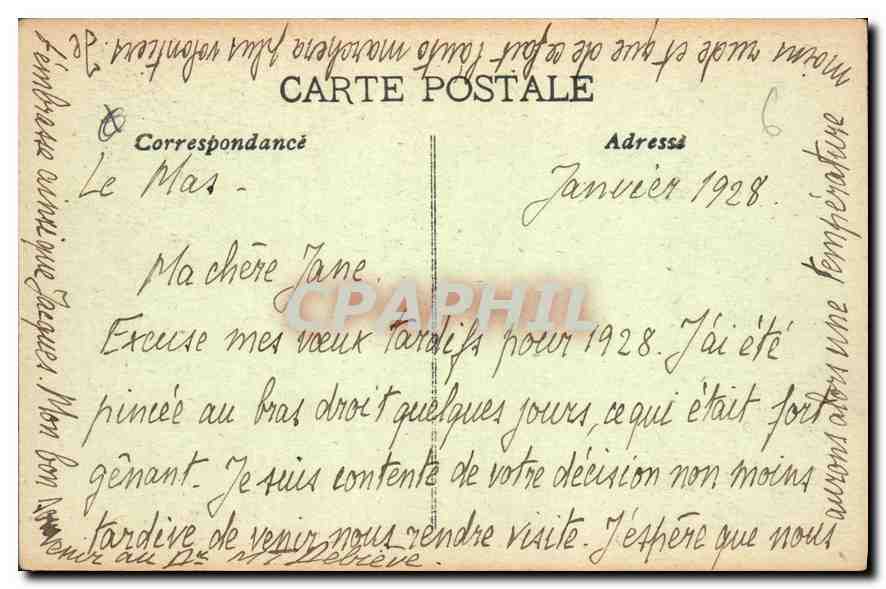 CARTE POSTALE
Correspondance
Adresse
6
Le Mas -
Janvier 1928.
Ma chère Jane.
CPAPHIL
Excuse mes vœux tardifs pour 1928. J'ai été
pincée au bras droit quelques jours, ce qui était fort
gênant. Je suis contente de votre décision non moins
tardive de venir nous rendre visite. J'espère que nous
aurons alors une température
moins rude et que de ce fait l'auto marchera plus volontiers. Je
t'embrasse ainsi que Jacques. Mon bon sou
venir au Dr